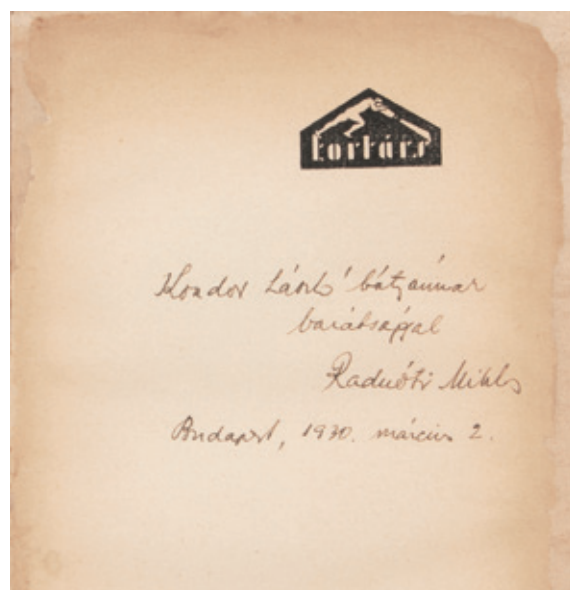 kortárs
Kondor László bátyámnak
barátsággal
Radnóti Miklós
Budapest, 1930. március 2.